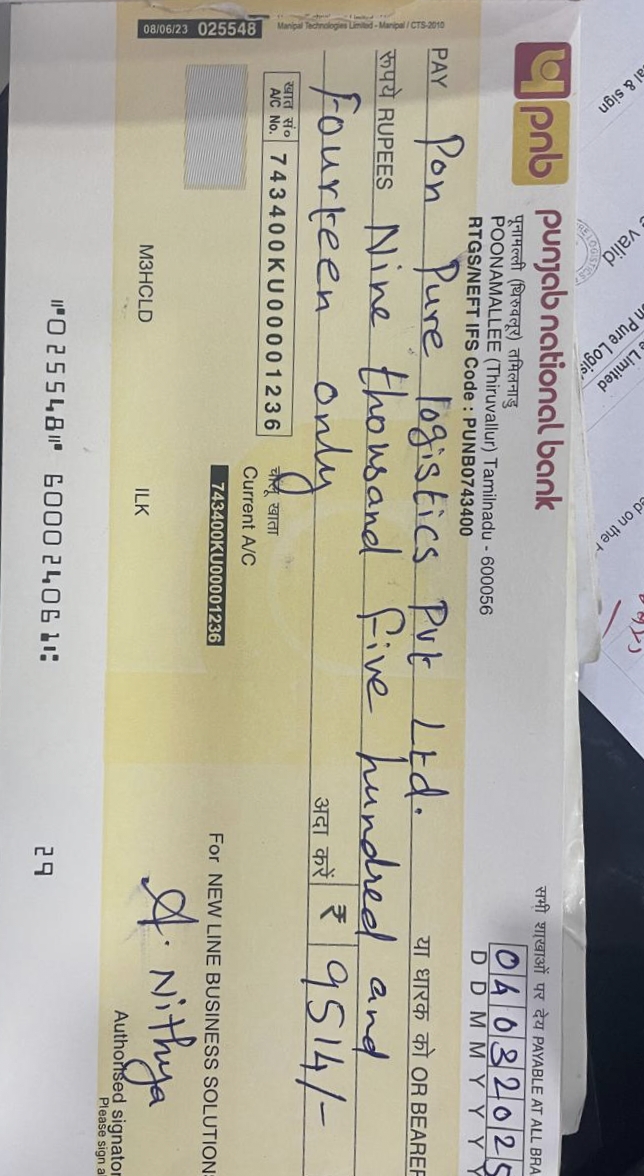 pnb punjab national bank
पूनामल्ली (थिरुवल्लूर) तमिलनाडु
POONAMALLEE (Thiruvallur) Tamilnadu - 600056
RTGS/NEFT IFS Code : PUNB0743400
सभी शाखाओं पर देय PAYABLE AT ALL BRA
04032025
D D M M Y Y Y Y
PAY Pon Pure logistics Pvt Ltd. या धारक को OR BEARER
रूपये RUPEES Nine thousand five hundred and
fourteen only
अदा करें ₹ 9514/-
खात सं०
A/C No. 743400KU00001236
चालू खाता
Current A/C
743400KU00001236
For NEW LINE BUSINESS SOLUTION
M3HCLD
ILK
A. Nithya
Authorised signator
Please sign a
"025548" 600024061: 29
08/06/23 025548
Manipal Technologies Limited - Manipal / CTS-2010
al & sign
valid
n Pure Logis
e Limited
ed on the